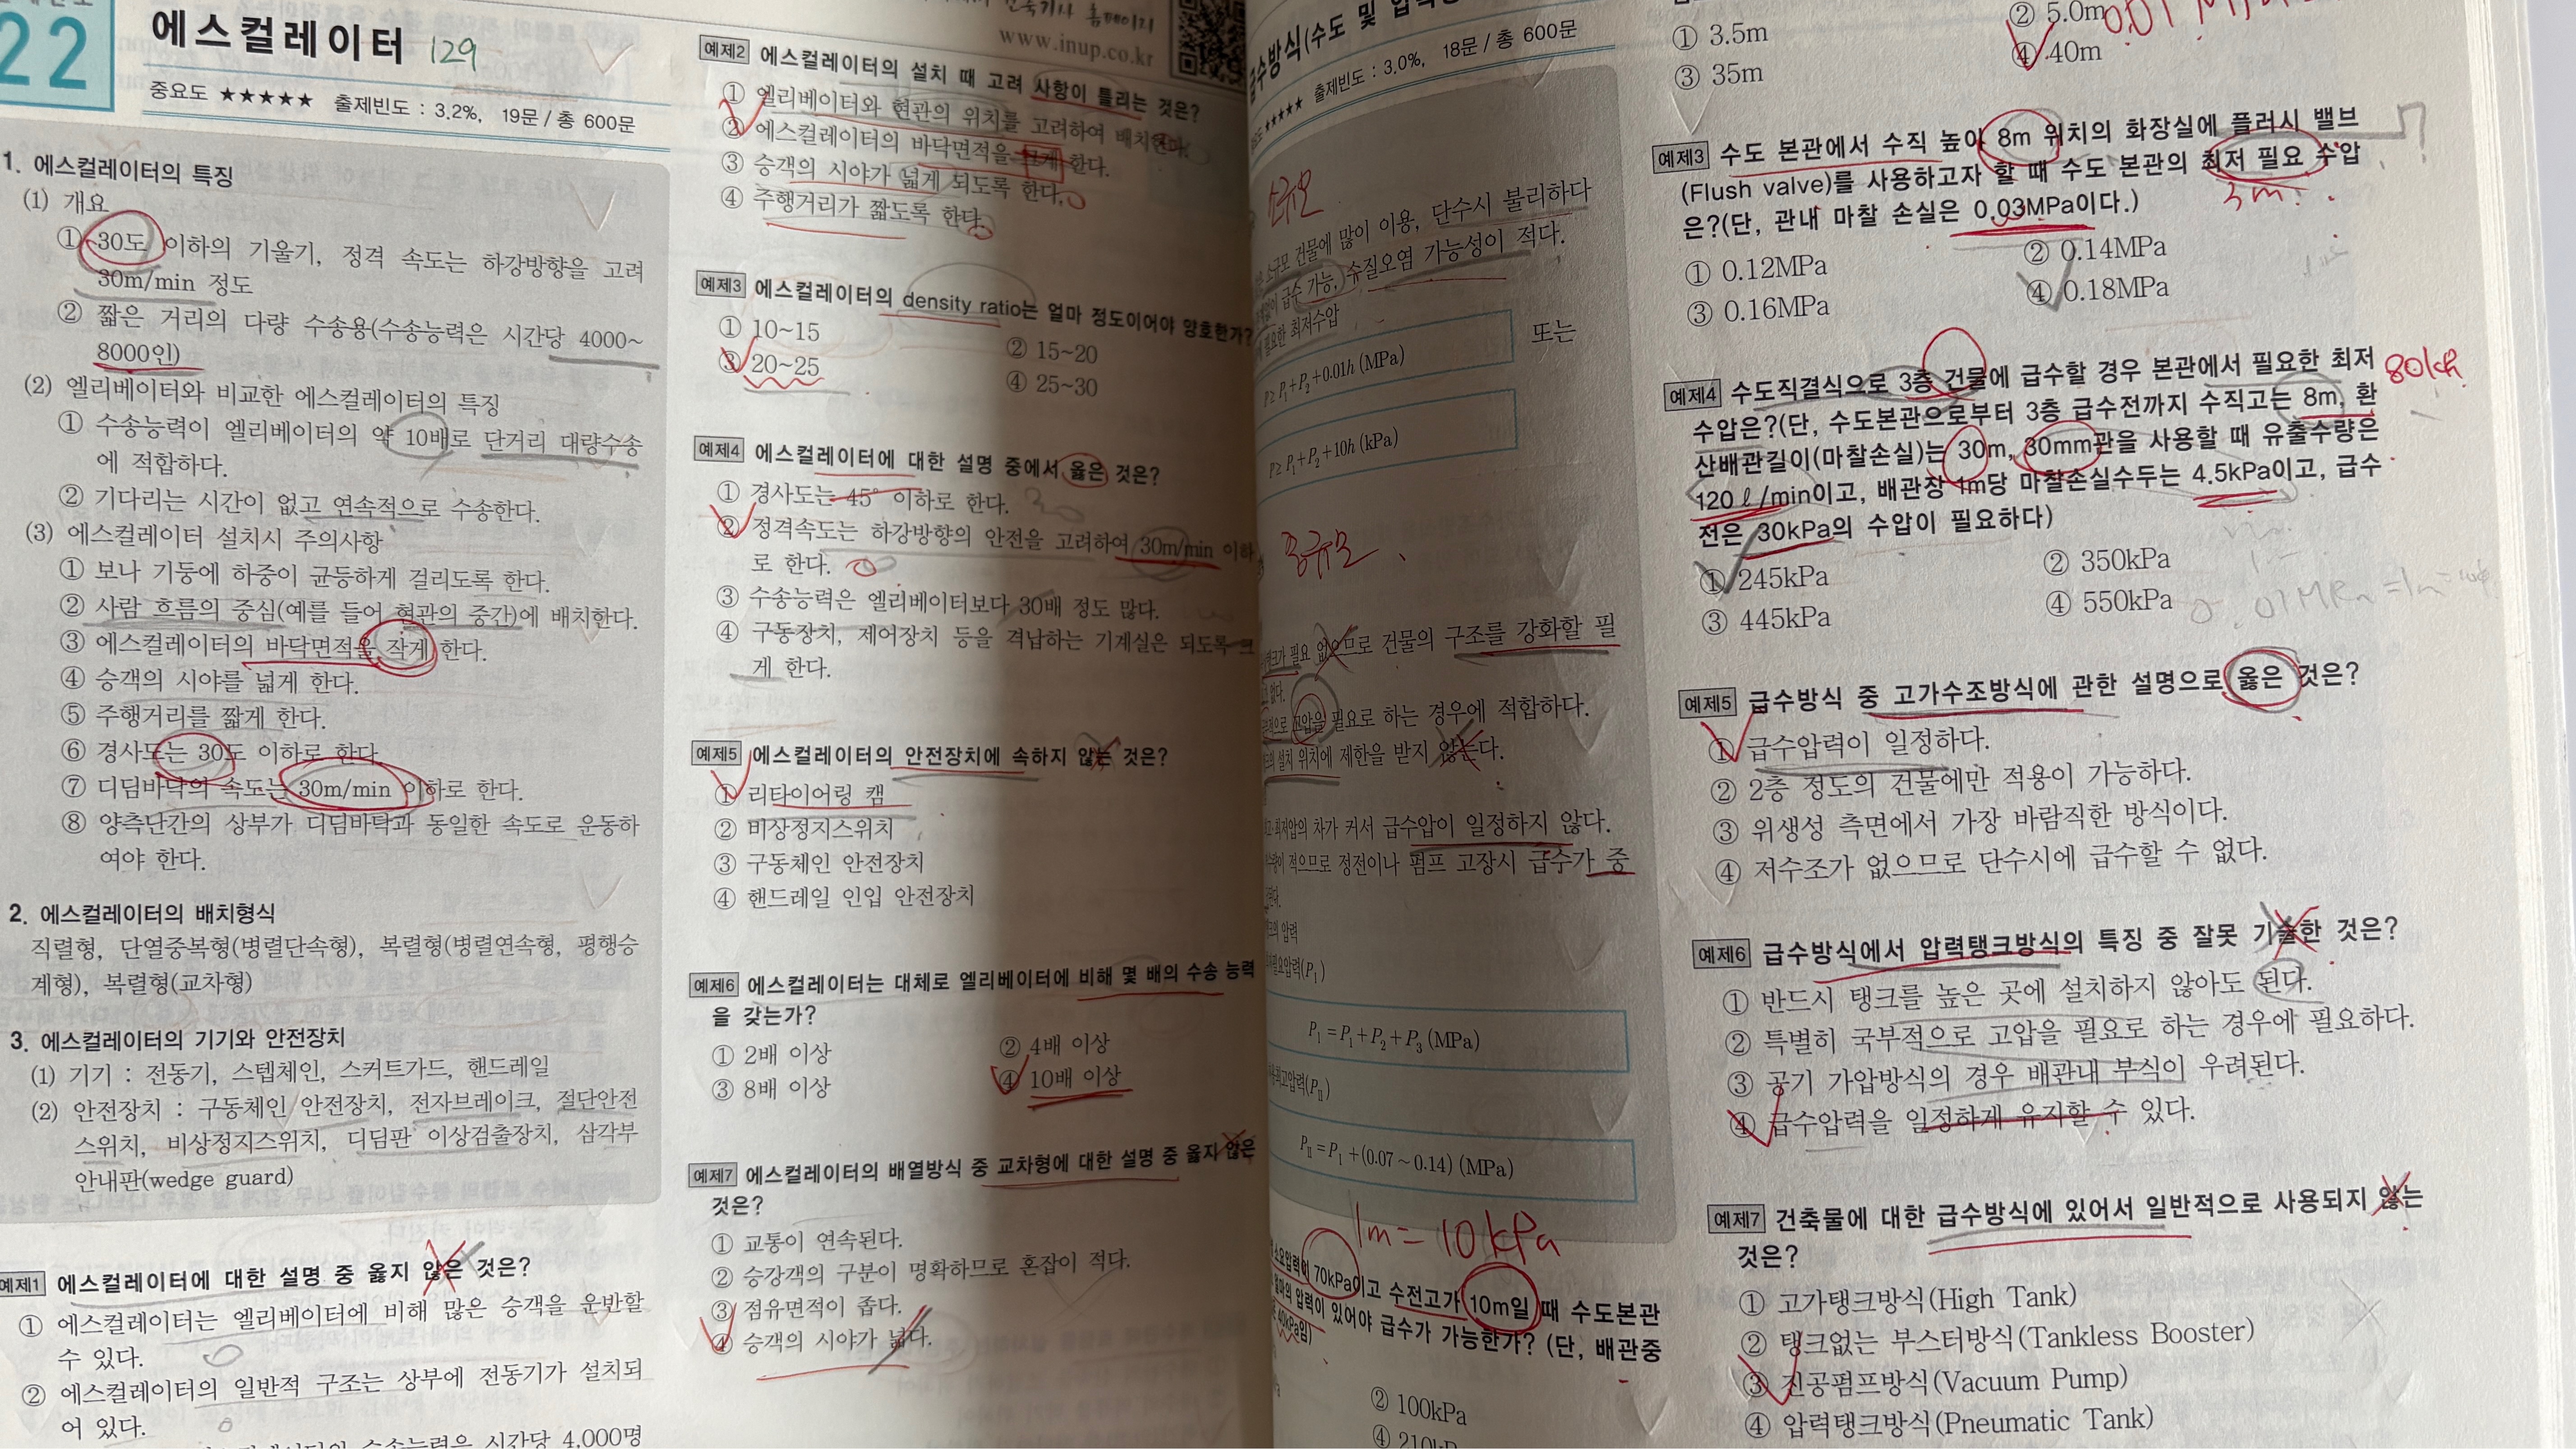 22
에스컬레이터 129
중요도 ★★★★★ 출제빈도 : 3.2%, 19문 / 총 600문
1. 에스컬레이터의 특징
(1) 개요
① 30도 이하의 기울기, 정격 속도는 하강방향을 고려
30m/min 정도
② 짧은 거리의 다량 수송용(수송능력은 시간당 4000~
8000인)
(2) 엘리베이터와 비교한 에스컬레이터의 특징
① 수송능력이 엘리베이터의 약 10배로 단거리 대량수송
에 적합하다.
② 기다리는 시간이 없고 연속적으로 수송한다.
(3) 에스컬레이터 설치시 주의사항
① 보나 기둥에 하중이 균등하게 걸리도록 한다.
② 사람 흐름의 중심(예를 들어 현관의 중간)에 배치한다.
③ 에스컬레이터의 바닥면적을 작게 한다.
④ 승객의 시야를 넓게 한다.
⑤ 주행거리를 짧게 한다.
⑥ 경사도는 30도 이하로 한다.
⑦ 디딤바닥의 속도는 30m/min 이하로 한다.
⑧ 양측난간의 상부가 디딤바닥과 동일한 속도로 운동하
여야 한다.
2. 에스컬레이터의 배치형식
직렬형, 단열중복형(병렬단속형), 복렬형(병렬연속형, 평행승
계형), 복렬형(교차형)
3. 에스컬레이터의 기기와 안전장치
(1) 기기 : 전동기, 스텝체인, 스커트가드, 핸드레일
(2) 안전장치 : 구동체인 안전장치, 전자브레이크, 절단안전
스위치, 비상정지스위치, 디딤판 이상검출장치, 삼각부
안내판(wedge guard)
예제1 에스컬레이터에 대한 설명 중 옳지 않은 것은?
① 에스컬레이터는 엘리베이터에 비해 많은 승객을 운반할
수 있다.
② 에스컬레이터의 일반적 구조는 상부에 전동기가 설치되
어 있다.
수송능력은 시간당 4,000명
홈페이지
www.inup.co.kr
예제2 에스컬레이터의 설치 때 고려 사항이 틀리는 것은?
① 엘리베이터와 현관의 위치를 고려하여 배치한다.
② 에스컬레이터의 바닥면적을 크게 한다.
③ 승객의 시야가 넓게 되도록 한다.
④ 주행거리가 짧도록 한다.
예제3 에스컬레이터의 density ratio는 얼마 정도이어야 양호한가?
① 10~15
② 15~20
③ 20~25
④ 25~30
예제4 에스컬레이터에 대한 설명 중에서 옳은 것은?
① 경사도는 45° 이하로 한다. 30
② 정격속도는 하강방향의 안전을 고려하여 30m/min 이하
로 한다.
③ 수송능력은 엘리베이터보다 30배 정도 많다.
④ 구동장치, 제어장치 등을 격납하는 기계실은 되도록 크
게 한다.
예제5 에스컬레이터의 안전장치에 속하지 않는 것은?
① 리타이어링 캠
② 비상정지스위치
③ 구동체인 안전장치
④ 핸드레일 인입 안전장치
예제6 에스컬레이터는 대체로 엘리베이터에 비해 몇 배의 수송 능력
을 갖는가?
① 2배 이상
② 4배 이상
③ 8배 이상
④ 10배 이상
예제7 에스컬레이터의 배열방식 중 교차형에 대한 설명 중 옳지 않은
것은?
① 교통이 연속된다.
② 승강객의 구분이 명확하므로 혼잡이 적다.
③ 점유면적이 좁다.
④ 승객의 시야가 넓다.
급수방식(수도 및
★★★★★ 출제빈도 : 3.0%, 18문 / 총 600문
소규모
소규모 건물에 많이 이용, 단수시 불리하다
급수 가능, 수질오염 가능성이 적다.
필요한 최저수압
P ≥ P₁+P₂+0.01h (MPa)
또는
P ≥ P₁+P₂+10h (kPa)
중규모
필요 없으므로 건물의 구조를 강화할 필
없다.
고압을 필요로 하는 경우에 적합하다.
설치 위치에 제한을 받지 않는다.
최저압의 차가 커서 급수압이 일정하지 않다.
적으므로 정전이나 펌프 고장시 급수가 중
압력
필요압력(P_I)
P_I = P₁+P₂+P₃ (MPa)
최고압력(P_II)
P_II = P_I+(0.07~0.14) (MPa)
1m = 10kPa
소요압력이 70kPa이고 수전고가 10m일 때 수도본관
얼마의 압력이 있어야 급수가 가능한가? (단, 배관중
40kPa임)
② 100kPa
① 3.5m
② 5.0m
③ 35m
④ 40m
예제3 수도 본관에서 수직 높이 8m 위치의 화장실에 플러시 밸브
(Flush valve)를 사용하고자 할 때 수도 본관의 최저 필요 수압
은?(단, 관내 마찰 손실은 0.03MPa이다.)
① 0.12MPa
② 0.14MPa
③ 0.16MPa
④ 0.18MPa
예제4 수도직결식으로 3층 건물에 급수할 경우 본관에서 필요한 최저
수압은?(단, 수도본관으로부터 3층 급수전까지 수직고는 8m, 환
산배관길이(마찰손실)는 30m, 30mm관을 사용할 때 유출수량은
120ℓ/min이고, 배관장 1m당 마찰손실수두는 4.5kPa이고, 급수
전은 30kPa의 수압이 필요하다)
① 245kPa
② 350kPa
③ 445kPa
④ 550kPa
예제5 급수방식 중 고가수조방식에 관한 설명으로 옳은 것은?
① 급수압력이 일정하다.
② 2층 정도의 건물에만 적용이 가능하다.
③ 위생성 측면에서 가장 바람직한 방식이다.
④ 저수조가 없으므로 단수시에 급수할 수 없다.
예제6 급수방식에서 압력탱크방식의 특징 중 잘못 기술한 것은?
① 반드시 탱크를 높은 곳에 설치하지 않아도 된다.
② 특별히 국부적으로 고압을 필요로 하는 경우에 필요하다.
③ 공기 가압방식의 경우 배관내 부식이 우려된다.
④ 급수압력을 일정하게 유지할 수 있다.
예제7 건축물에 대한 급수방식에 있어서 일반적으로 사용되지 않는
것은?
① 고가탱크방식(High Tank)
② 탱크없는 부스터방식(Tankless Booster)
③ 진공펌프방식(Vacuum Pump)
④ 압력탱크방식(Pneumatic Tank)